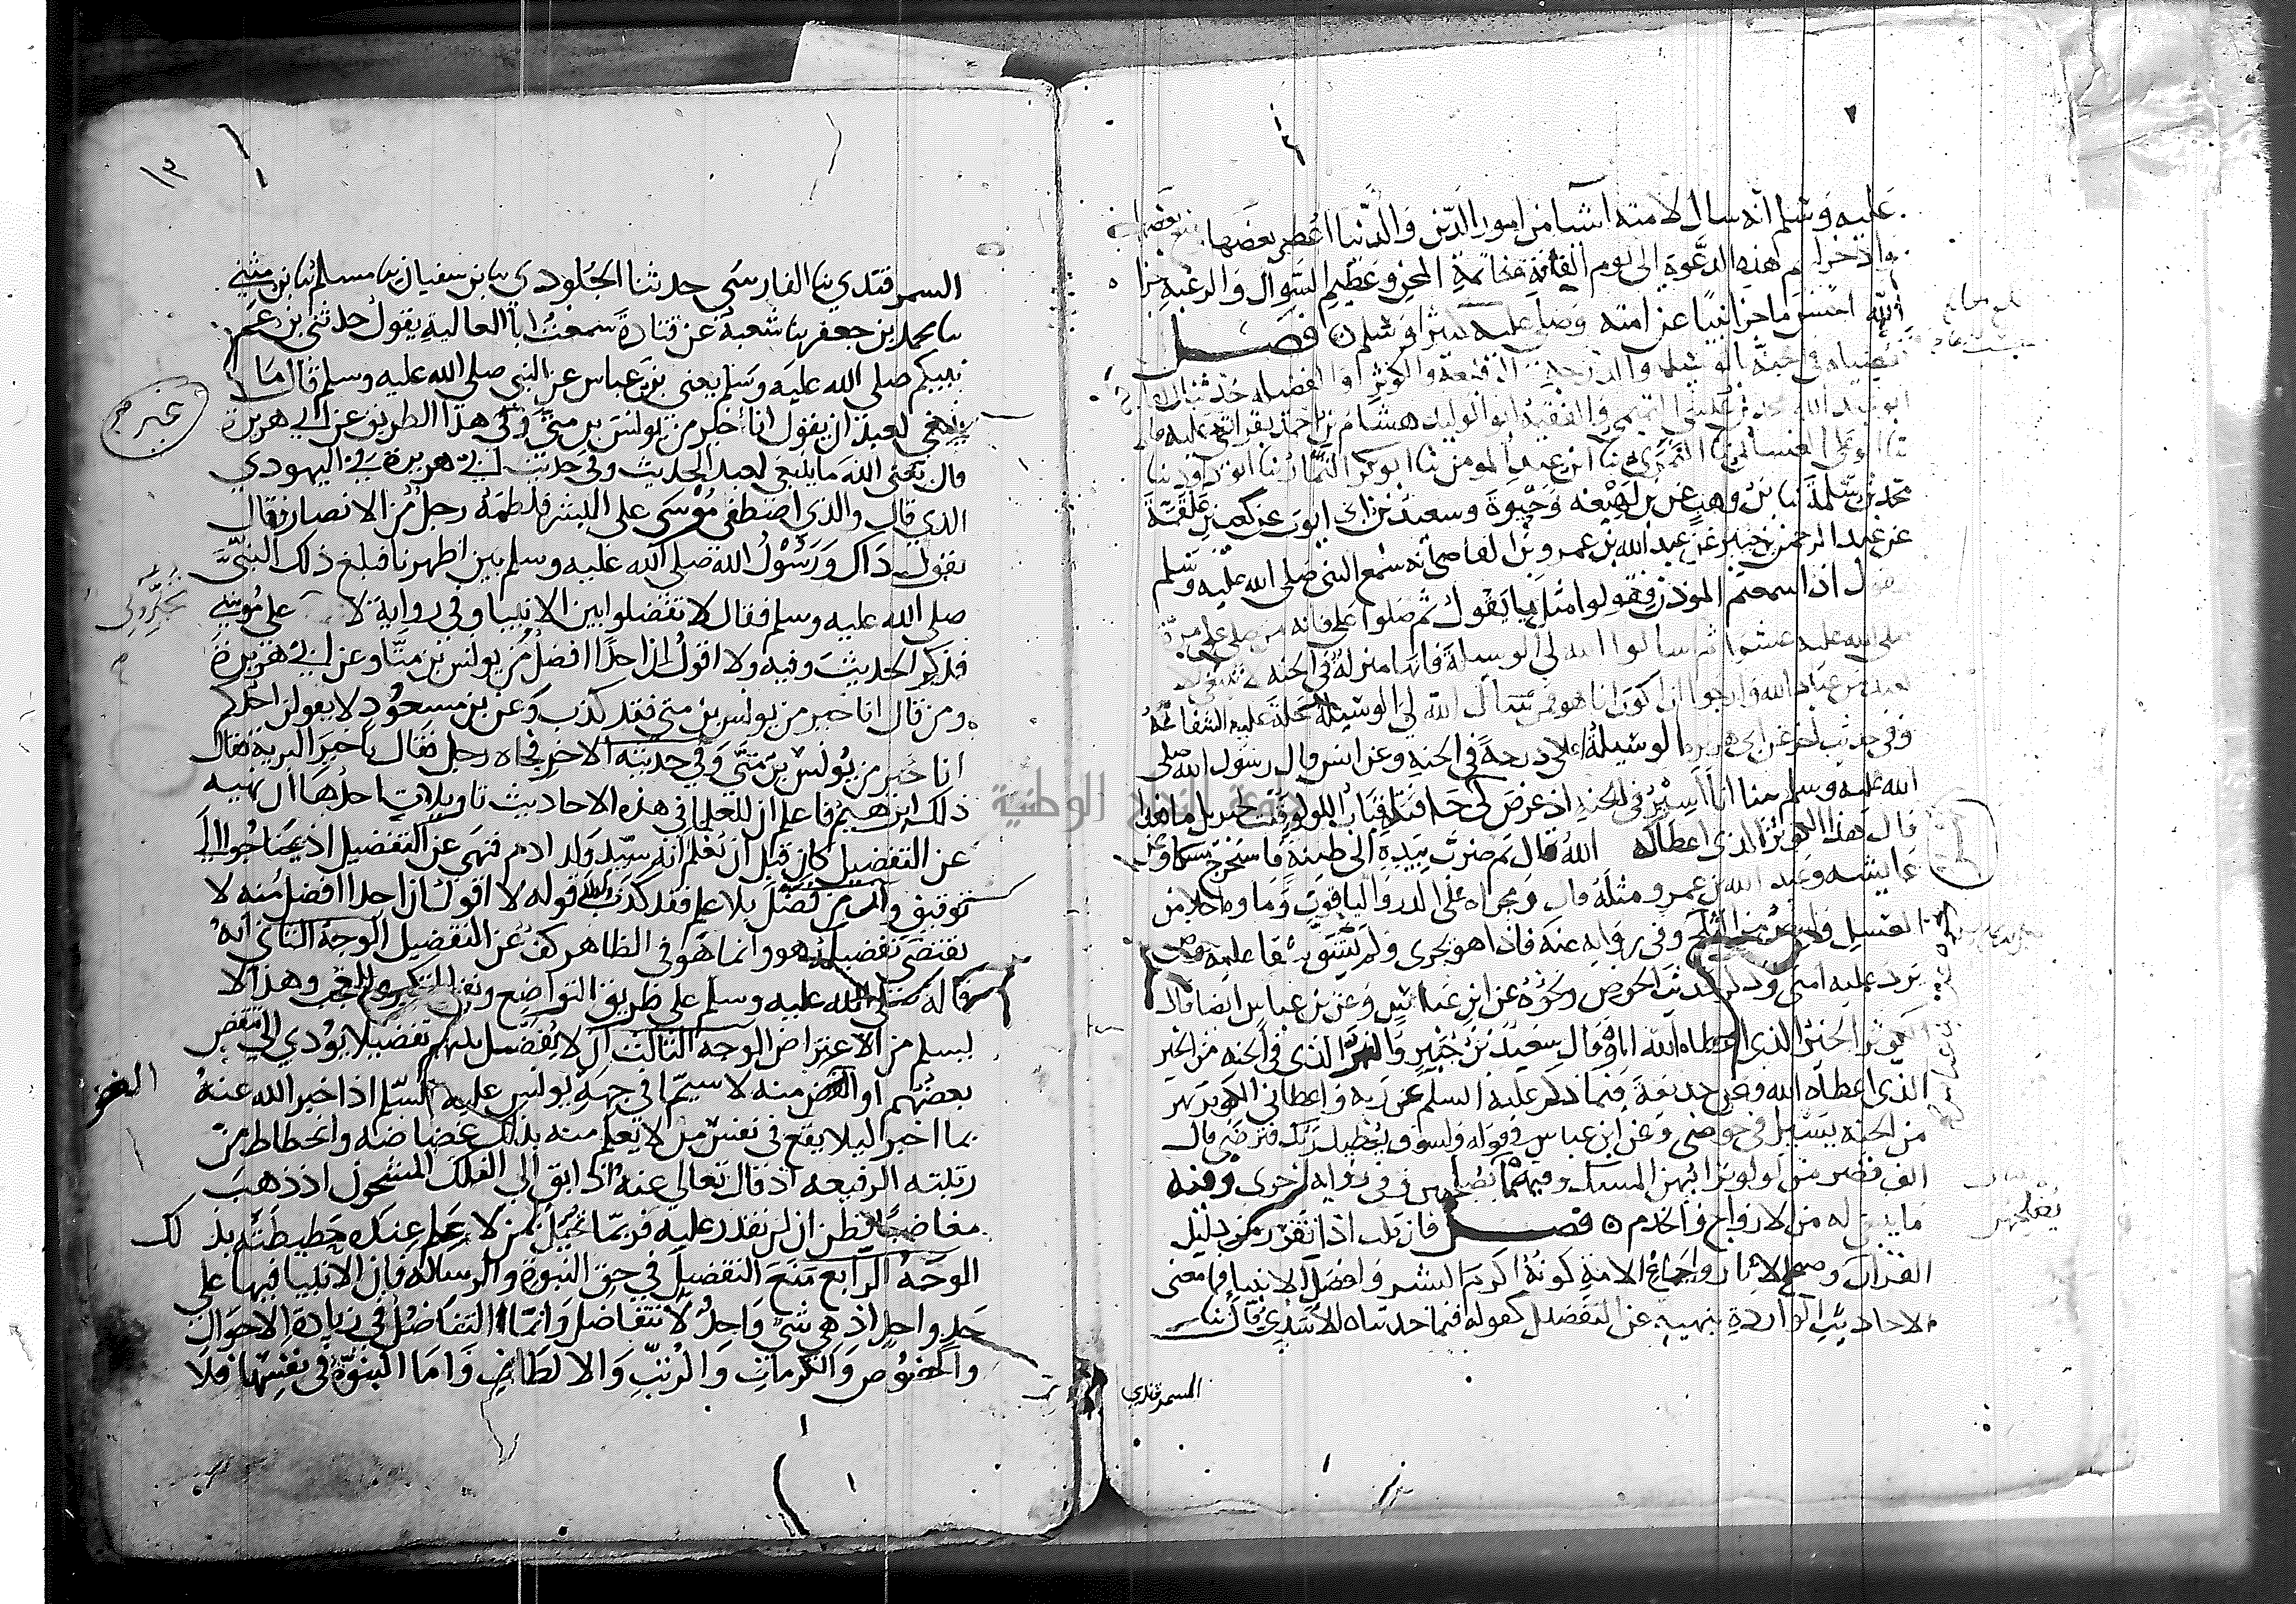 عليه وسلم انه سال لامته اشيا من امور الدين والدنيا اعطى بعضها
واذخر لهم هذه الدعوة الى يوم الفاقة وخاتمة المحن وعظيم السوال والرغبة جزاه
الله احسن ما جزا نبيا عن امته وصلى عليه كثيرا وسلم فصل
تفضيله في الجنة بالوسيلة والدرجة الرفيعة والكوثر والفضيلة حدثنا القاضي
ابو عبد الله محمد بن عيسى التميمي والفقيه ابو الوليد هشام بن احمد بقراتي عليه قالا
ثنا ابو علي الغساني ثنا النمري ثنا ابن عبد المومن ثنا ابو بكر التمار ثنا ابو داود ثنا
محمد بن سلمة ثنا بن وهب عن بن لهيعه وحيوة وسعيد بن ابى ايوب عن كعب بن علقمة
عن عبد الرحمن بن جبير عن عبد الله بن عمرو بن العاصى انه سمع النبى صلى الله عليه وسلم
يقول اذا سمعتم الموذن فقولوا مثل ما يقول ثم صلوا على فانه من صلى على مرة
صلى الله عليه عشرا ثم سالوا الله لي الوسيلة فانها منزلة في الجنة لا تنبغي الا
لعبد من عباد الله وارجوا ان اكون انا هو فمن سال الله لي الوسيلة حلت عليه الشفاعة
وفي حديث اخر عن ابى هريرة الوسيلة اعلا درجة في الجنه وعن انس قال رسول الله صلى
الله عليه وسلم بينا انا اسير في الجنه اذ عرض لى نهر حافتاه قباب اللولو قلت لجبريل ما هذا
قال هذا الكوثر الذى اعطاكه الله قال ثم ضرب بيده الى طينه فاستخرج مسكا وعن
عايشه وعبد الله بن عمرو مثله قال ومجراه على الدر والياقوت وماوه احلا من
العسل وابيض من الثلج وفى روايه عنه فاذا هو يجرى ولم يشق شقا عليه حوض
ترد عليه امتى وذكر حديث الحوض ونحوه عن ابن عباس وعن بن عباس ايضا قال
الكوثر الخير الذى اعطاه الله اياه وقال سعيد بن جبير والنهر الذى في الجنه من الخير
الذى اعطاه الله وعن حذيفة فيما ذكر عليه السلم عن ربه واعطاني الكوثر نهر
من الجنه يسيل في حوضى وعن ابن عباس في قوله ولسوف يعطيك ربك فترضى قال
الف قصر من لولو ترابهن المسك وفيه ما يصلحهن وفى روايه اخرى وفيه
ما ينبغى له من الازواج والخدم فصل فان قلت اذا تقرر من دليل
القران وصحيح الاثار واجماع الامة كونه اكرم البشر وافضل الانبيا فما معنى
الاحاديث الواردة بنهيه عن التفضيل كقوله فيما حدثناه الاسدي قال ثنا
السمرقندي
السمرقندي ثنا الفارسي حدثنا الجلودي ثنا بن سفيان ثنا مسلم ثنا بن مثنى
ثنا محمد بن جعفر ثنا شعبة عن قتادة سمعت ابا العالية يقول حدثني بن عم
نبيكم صلى الله عليه وسلم يعنى بن عباس عن النبي صلى الله عليه وسلم قال ما
ينبغي لعبد ان يقول انا خير من يونس بن متى وفي هذا الطريق عن ابي هريرة
قال يعنى الله ما ينبغي لعبد الحديث وفي حديث ابي هريرة في اليهودي
الذي قال والذي اصطفى موسى على البشر فلطمه رجل من الانصار فقال
تقول ذاك ورسول الله صلى الله عليه وسلم بين اظهرنا فبلغ ذلك النبي
صلى الله عليه وسلم فقال لا تفضلوا بين الانبيا وفي رواية لا على موسى
فذكر الحديث وفيه ولا اقول ان احدا افضل من يونس بن متا وعن ابي هريرة
ومن قال انا خير من يونس بن متى فقد كذب وعن بن مسعود لا يقولن احدكم
انا خير من يونس بن متى وفي حديثه الاخر فجاه رجل فقال يا خير البرية فقال
ذلك ابرهيم فاعلم ان للعلما في هذه الاحاديث تاويلات احدها ان نهيه
عن التفضيل كان قبل ان يعلم انه سيد ولد ادم فنهى عن التفضيل اذ يحتاج الى
توقيف وان من فضل بلا علم فقد كذب وكذلك قوله لا اقول ان احدا افضل منه لا
يقتضى تفضيله هو وانما هو في الظاهر كف عن التفضيل الوجه الثاني انه
قاله صلى الله عليه وسلم على طريق التواضع ونفي التكبر والعجب وهذا لا
يسلم من الاعتراض الوجه الثالث ان لا يفضل بينهم تفضيلا يؤدي الى تنقص
بعضهم او الغض منه لا سيما في جهة يونس عليه السلم اذ اخبر الله عنه
بما اخبر ليلا يقع في نفس من لا يعلم منه بذلك غضاضه وانحطاط من
رتبته الرفيعه اذ قال تعالى عنه اذ ابق الى الفلك المشحون اذ ذهب
مغاضبا فظن ان لن نقدر عليه فربما تخيل لمن لا علم عنده حطيطته بذلك
الوجه الرابع منع التفضيل في حق النبوة والرساله فان الانبيا فيها على
حد واحد اذ هي شي واحد لا تتفاضل وانما التفاضل في زيادة الاحوال
والخصوص والكرمات والرتب والالطاف واما النبوة في نفسها فلا
جامعة النجاح الوطنية